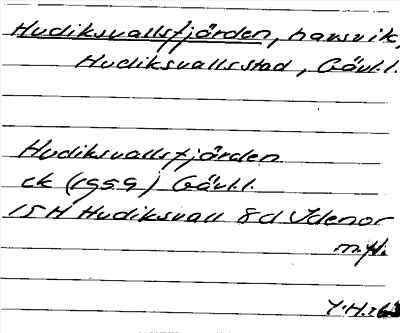 Hudiksvallsfjärden, havsvik,
Hudiksvalls stad, Gävl.l.
Hudiksvallsfjärden
ek (1959) Gävl.l.
15H Hudiksvall 8d Idenor
m.fl.
Y.H.